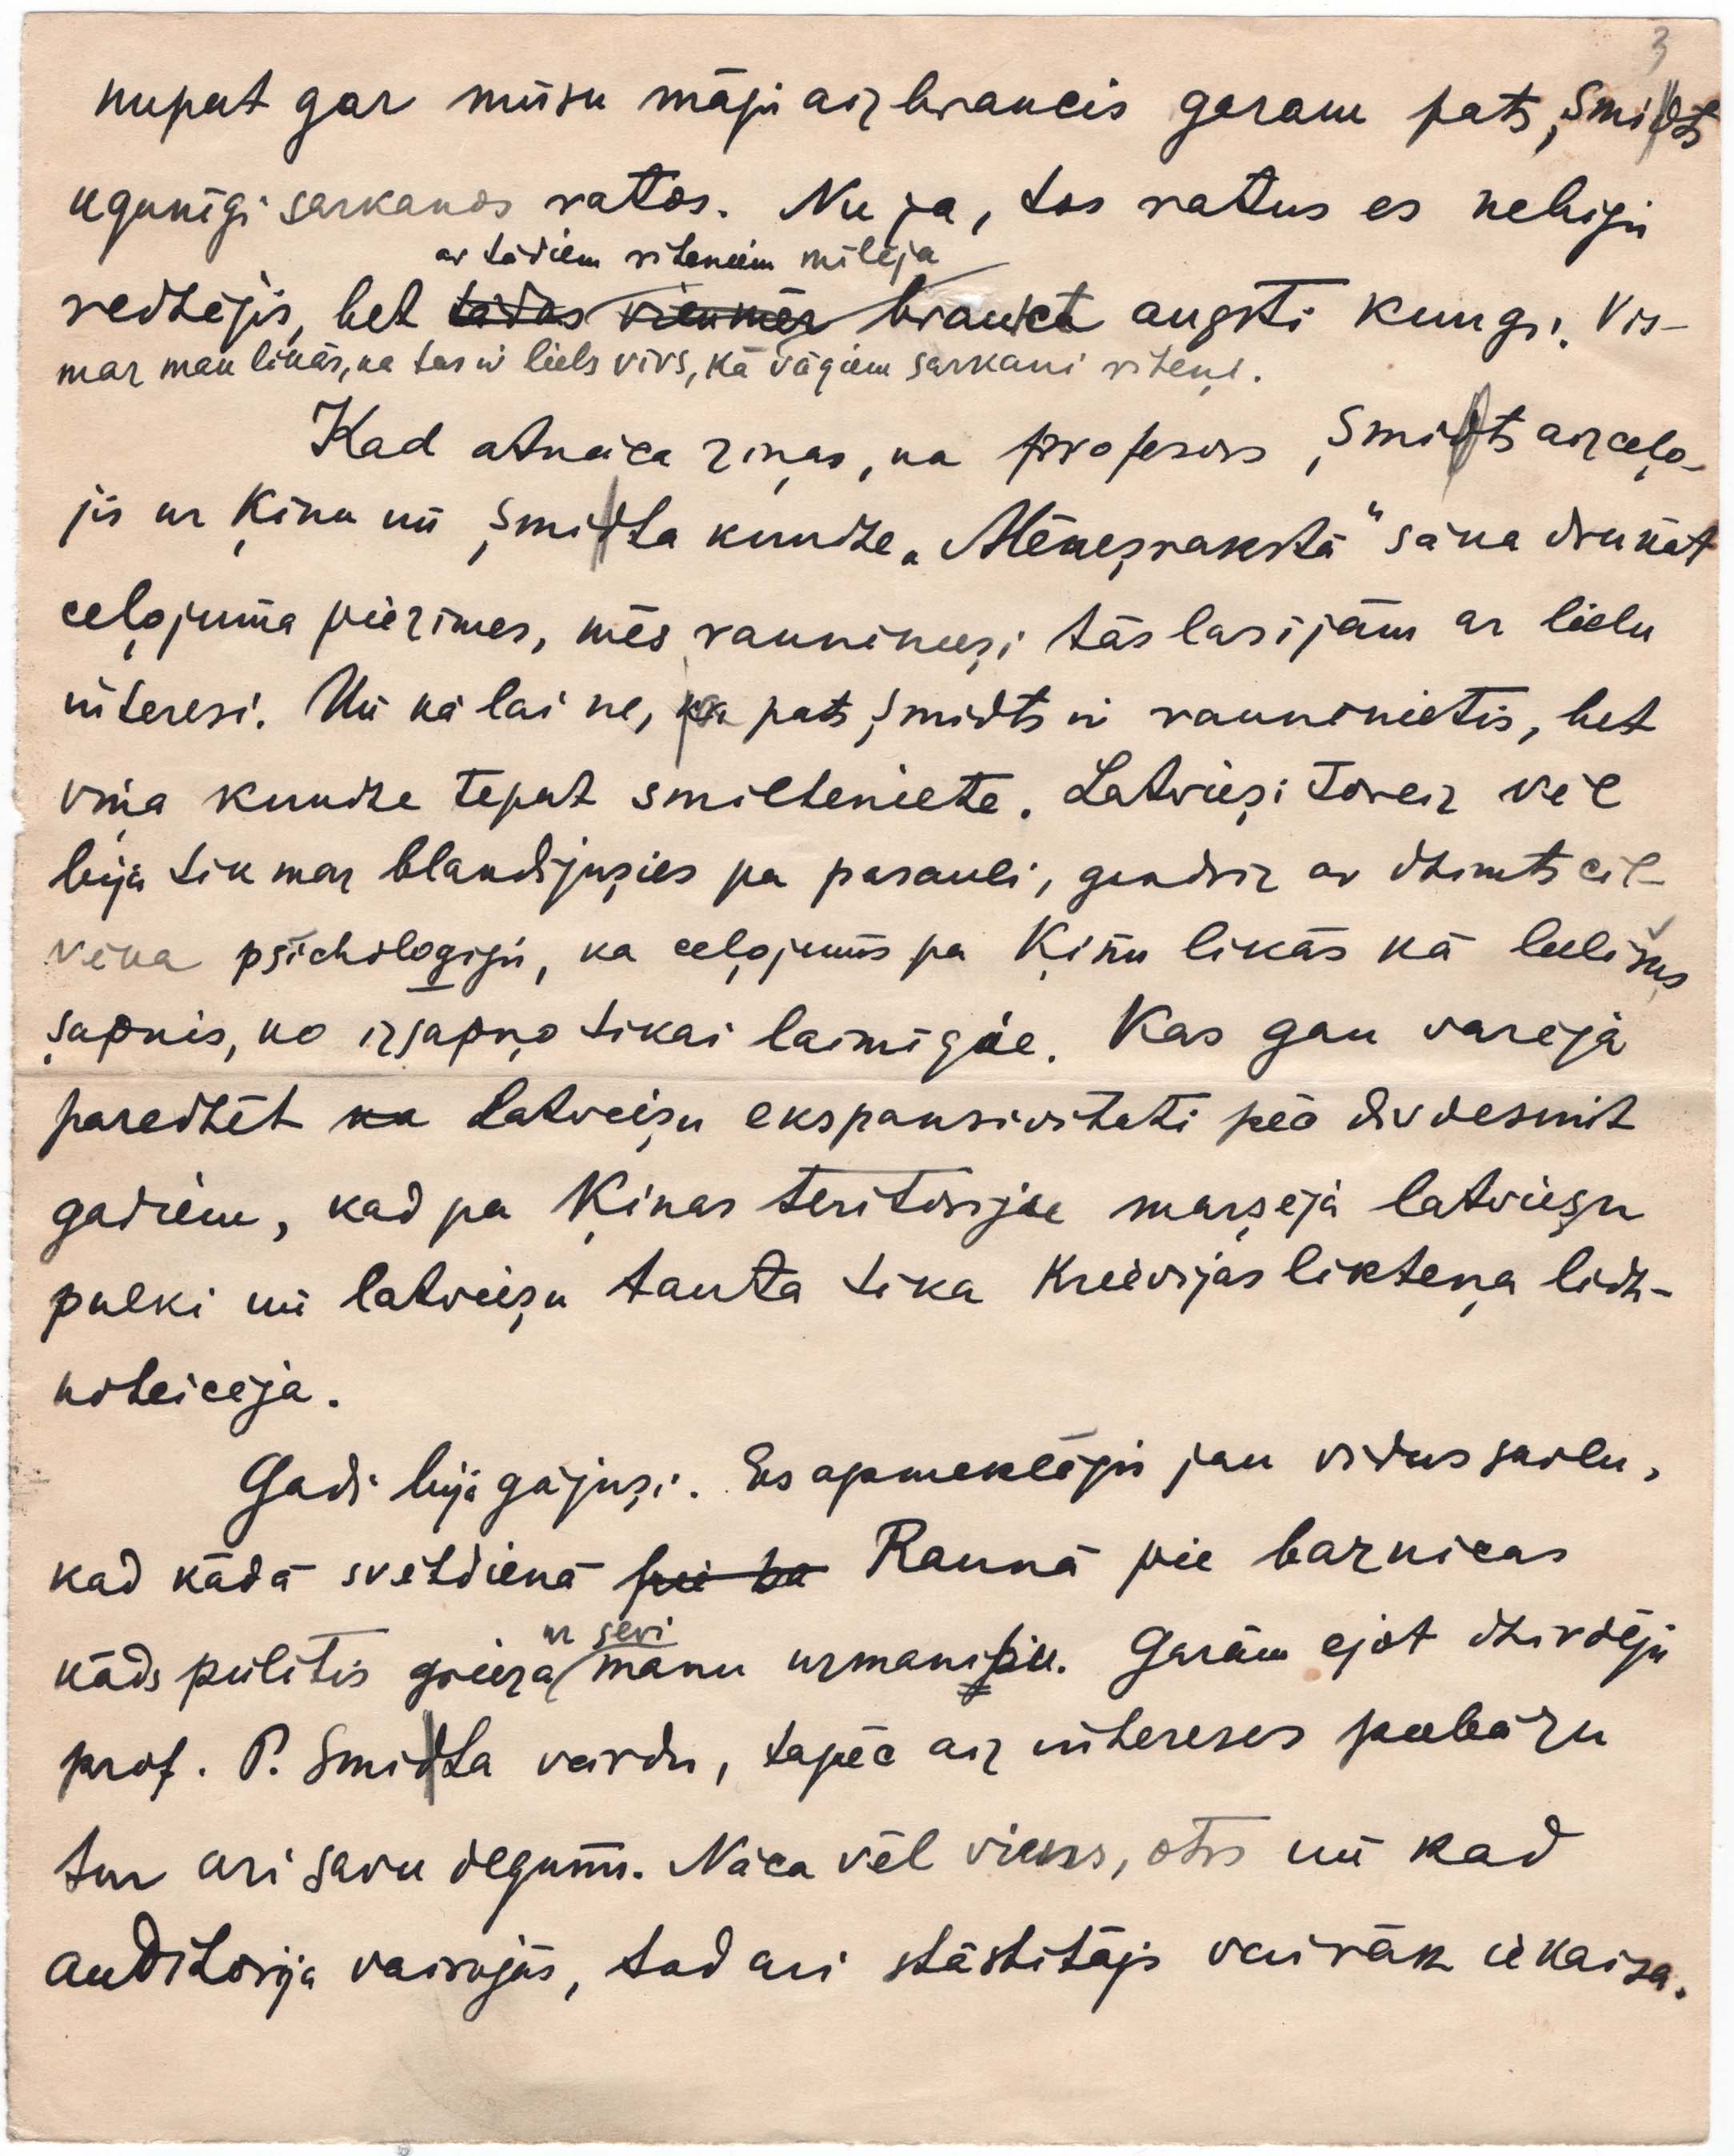 3
nupat gar mūsu māju aizbraucis garam pats Šmidts
ugunīgi sarkanos ratos. Nu ja, tos ratus es nebiju
ar tādiem riteņiem mīlēja
redzējis, bet tādos vienmēr braukt augsti kungi. Vis-
maz man likās, ka tas ir liels vīrs, kā vāģiem sarkani riteņi.
Kad atnāca ziņas, ka profesors Šmidts aizceļo-
jis uz Ķīnu un Šmidta kundze „Mēnešrakstā" sāka drukāt
ceļojuma piezīmes, mēs raunineeši tās lasijām ar lielu
interesi. Un kā lai ne, ka pats Šmidts ir raunēnietis, bet
viņa kundze tepat smilteniete. Latvieši toreiz vēl
bija tik maz blandījušies pa pasauli, gandriz ar dzimtscil-
vēka psīchologiju, ka ceļojums pa Ķīnu likās kā lielisks
sapnis, ko izsapņo tikai laimīgāe. Kas gan varēja
paredzēt ka Latviešu ekspansivitāti pēc divdesmit
gadiem, kad pa Ķīnas teritoriju maršēja latviešu
pulki un latviešu tauta tika Krievijas likteņa lidz-
noteicēja.
Gadi bija gājuši. Es apmeklēju jau vidusskolu,
kad kādā svētdienā pie ba Raunā pie baznicas
uz sevi
kāds pulitis grieza manu uzmanību. Garām ejot dzirdēju
prof. P. Šmidta vārdu, tapēc aiz intereses piebāzu
tur ari savu degunu. Nāca vēl viens, otrs un kad
auditorija vairojās, tad ari stāstitājs vairāk iekaisa.